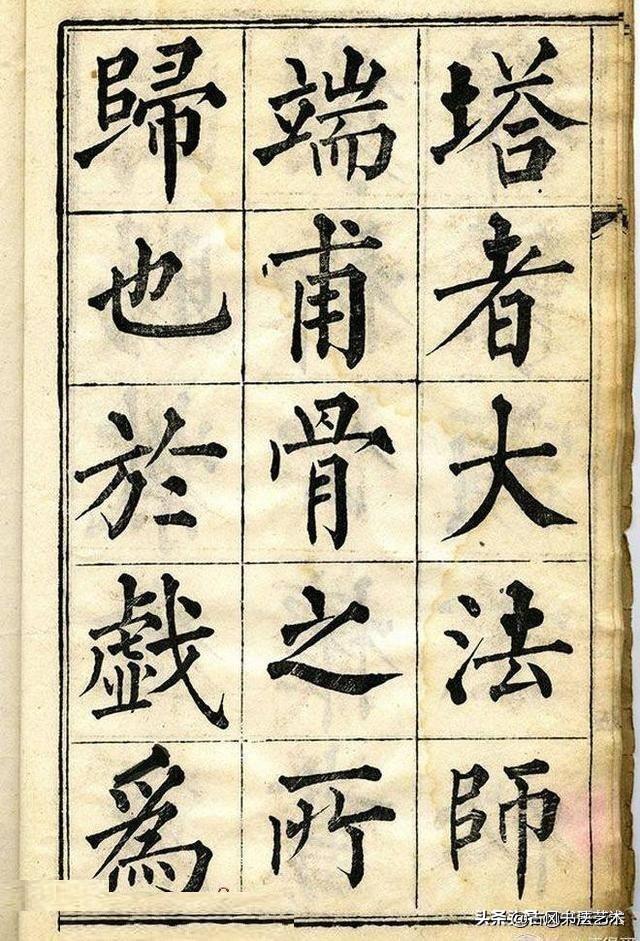 塔者大法師
端甫骨之所
歸也於戲為
头条@古风书法艺术